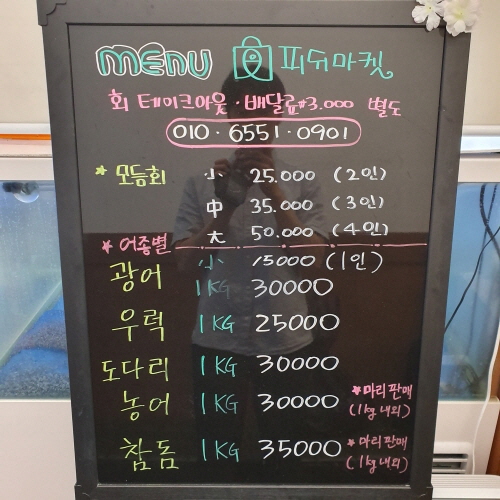 MENU 피쉬마켓
회 테이크아웃 · 배달료 ₩3.000 별도
010 · 6551 · 0901
* 모듬회 小 25.000 (2인)
中 35.000 (3인)
大 50.000 (4인)
* 어종별
小 15000 (1인)
광어 1KG 30000
우럭 1KG 25000
도다리 1KG 30000
농어 1KG 30000 *마리판매
(1kg내외)
참돔 1KG 35000 *마리판매
(1kg내외)